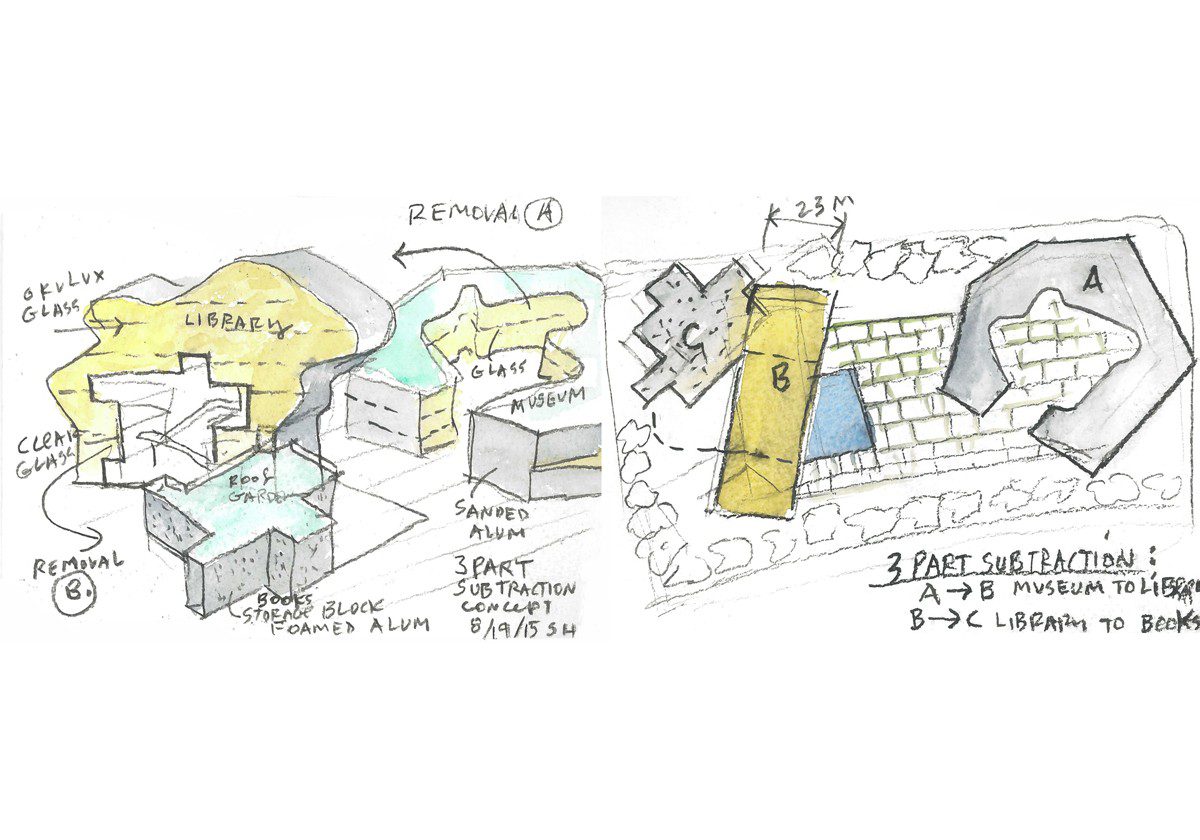 REMOVAL A
OKULUX
GLASS
LIBRARY
GLASS
MUSEUM
CLEAR
GLASS
ROOF
GARDEN
REMOVAL
B.
SANDED
ALUM
BOOKS
STORAGE BLOCK
FOAMED ALUM
3 PART
SUBTRACTION
CONCEPT
8/19/15 SH
23 M
A
B
C
3 PART SUBTRACTION:
A→B MUSEUM TO LIBRARY
B→C LIBRARY TO BOOKS